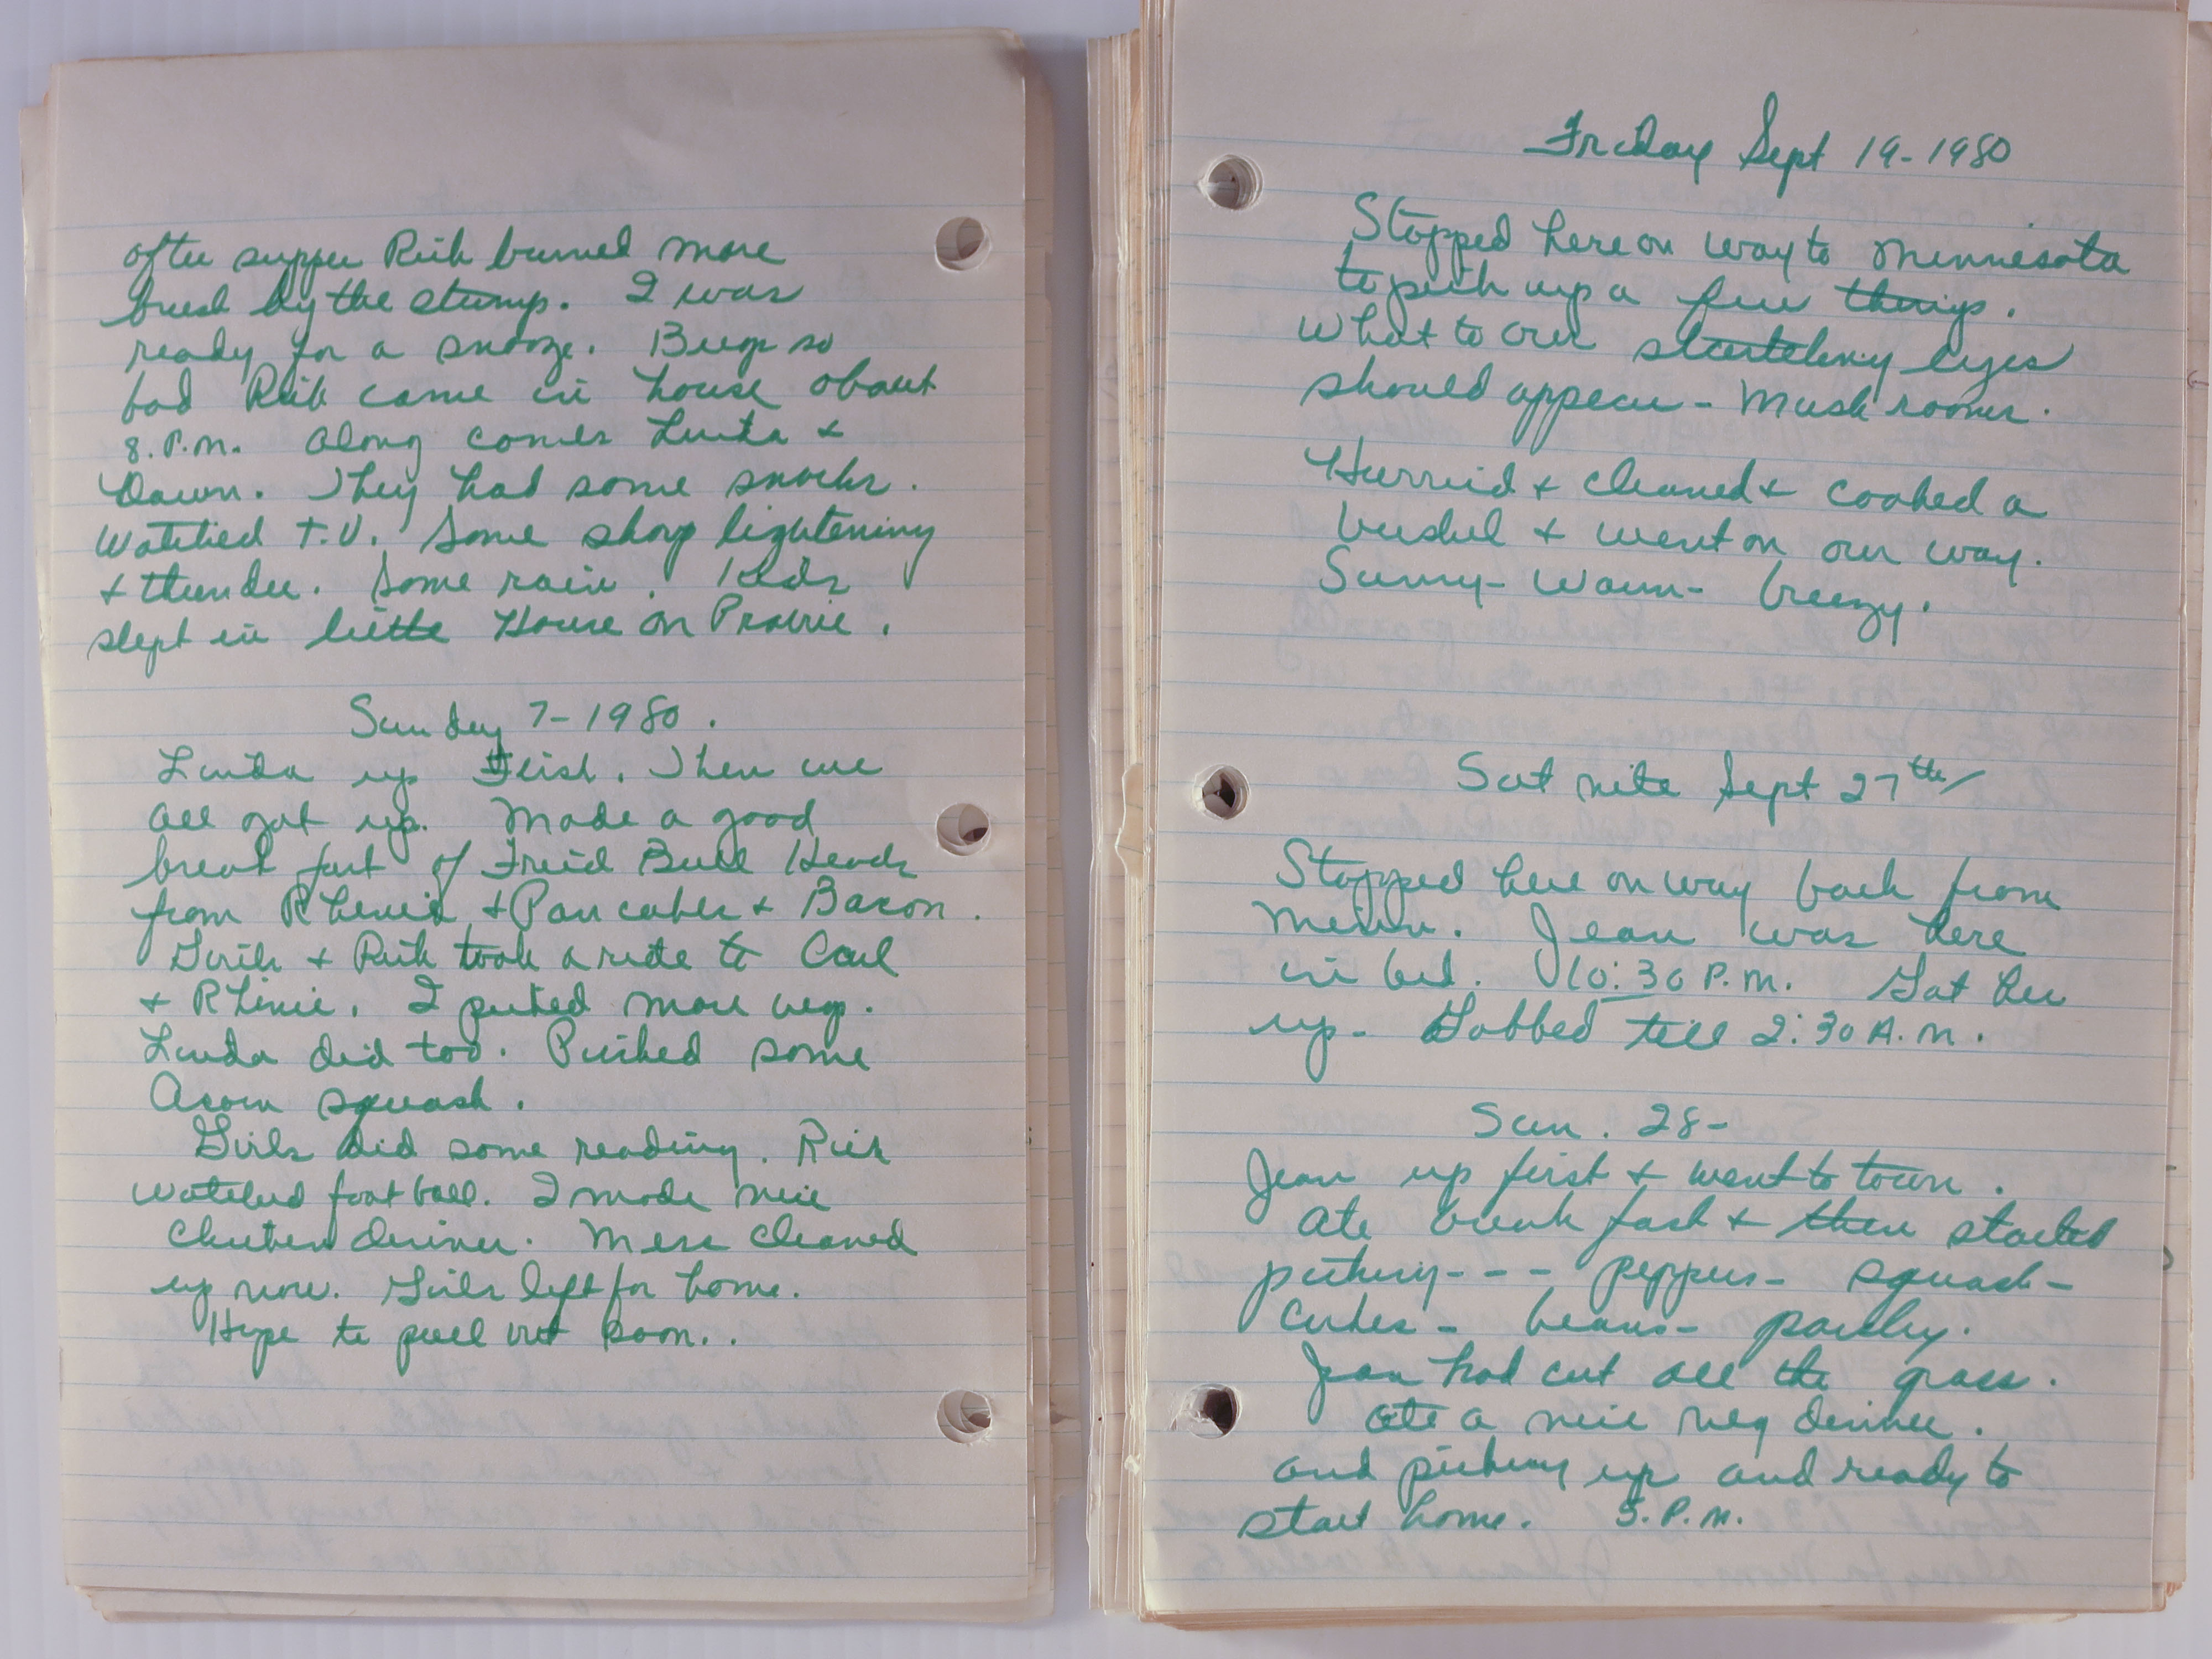 after supper Rich burned more
brush by the stump. I was
ready for a snooze. Bugs so
bad Rich came in house about
8. P.M. Along comes Linda &
Dawn. They had some snacks.
Watched T.V. Some sharp lightening
& thunder. Some rain. Kids
slept in little House on Prairie.
Sunday 7-1980.
Linda up First. Then we
all got up. Made a good
break fast of Fried Bull Heads
from & Pancakes & Bacon.
Girls & Rich took a ride to Carl
& I picked more veg.
Linda did too. Picked some
Acorn squash.
Girls did some reading. Rich
watched foot ball. I made nice
chicken dinner. Mess cleaned
up now. Girls left for home.
Hope to pull out soon..
Friday Sept 19-1980
Stopped here on way to Minnesota
to pick up a few things.
What to our eyes
should appear - Mushrooms.
Hurried & cleaned & cooked a
bushel & went on our way.
Sunny - Warm - breezy.
Sat nite Sept 27th
Stopped here on way back from
Minn. Jean was here
in bed. 10:30 P.M. Got her
up - Gabbed till 2:30 A.M.
Sun. 28-
Jean up first & went to town.
Ate break fast & then started
picking - - - peppers - squash -
cukes - beans - parsley.
Jean had cut all the grass.
Ate a nice veg dinner.
and picking up and ready to
start home. 5. P.M.